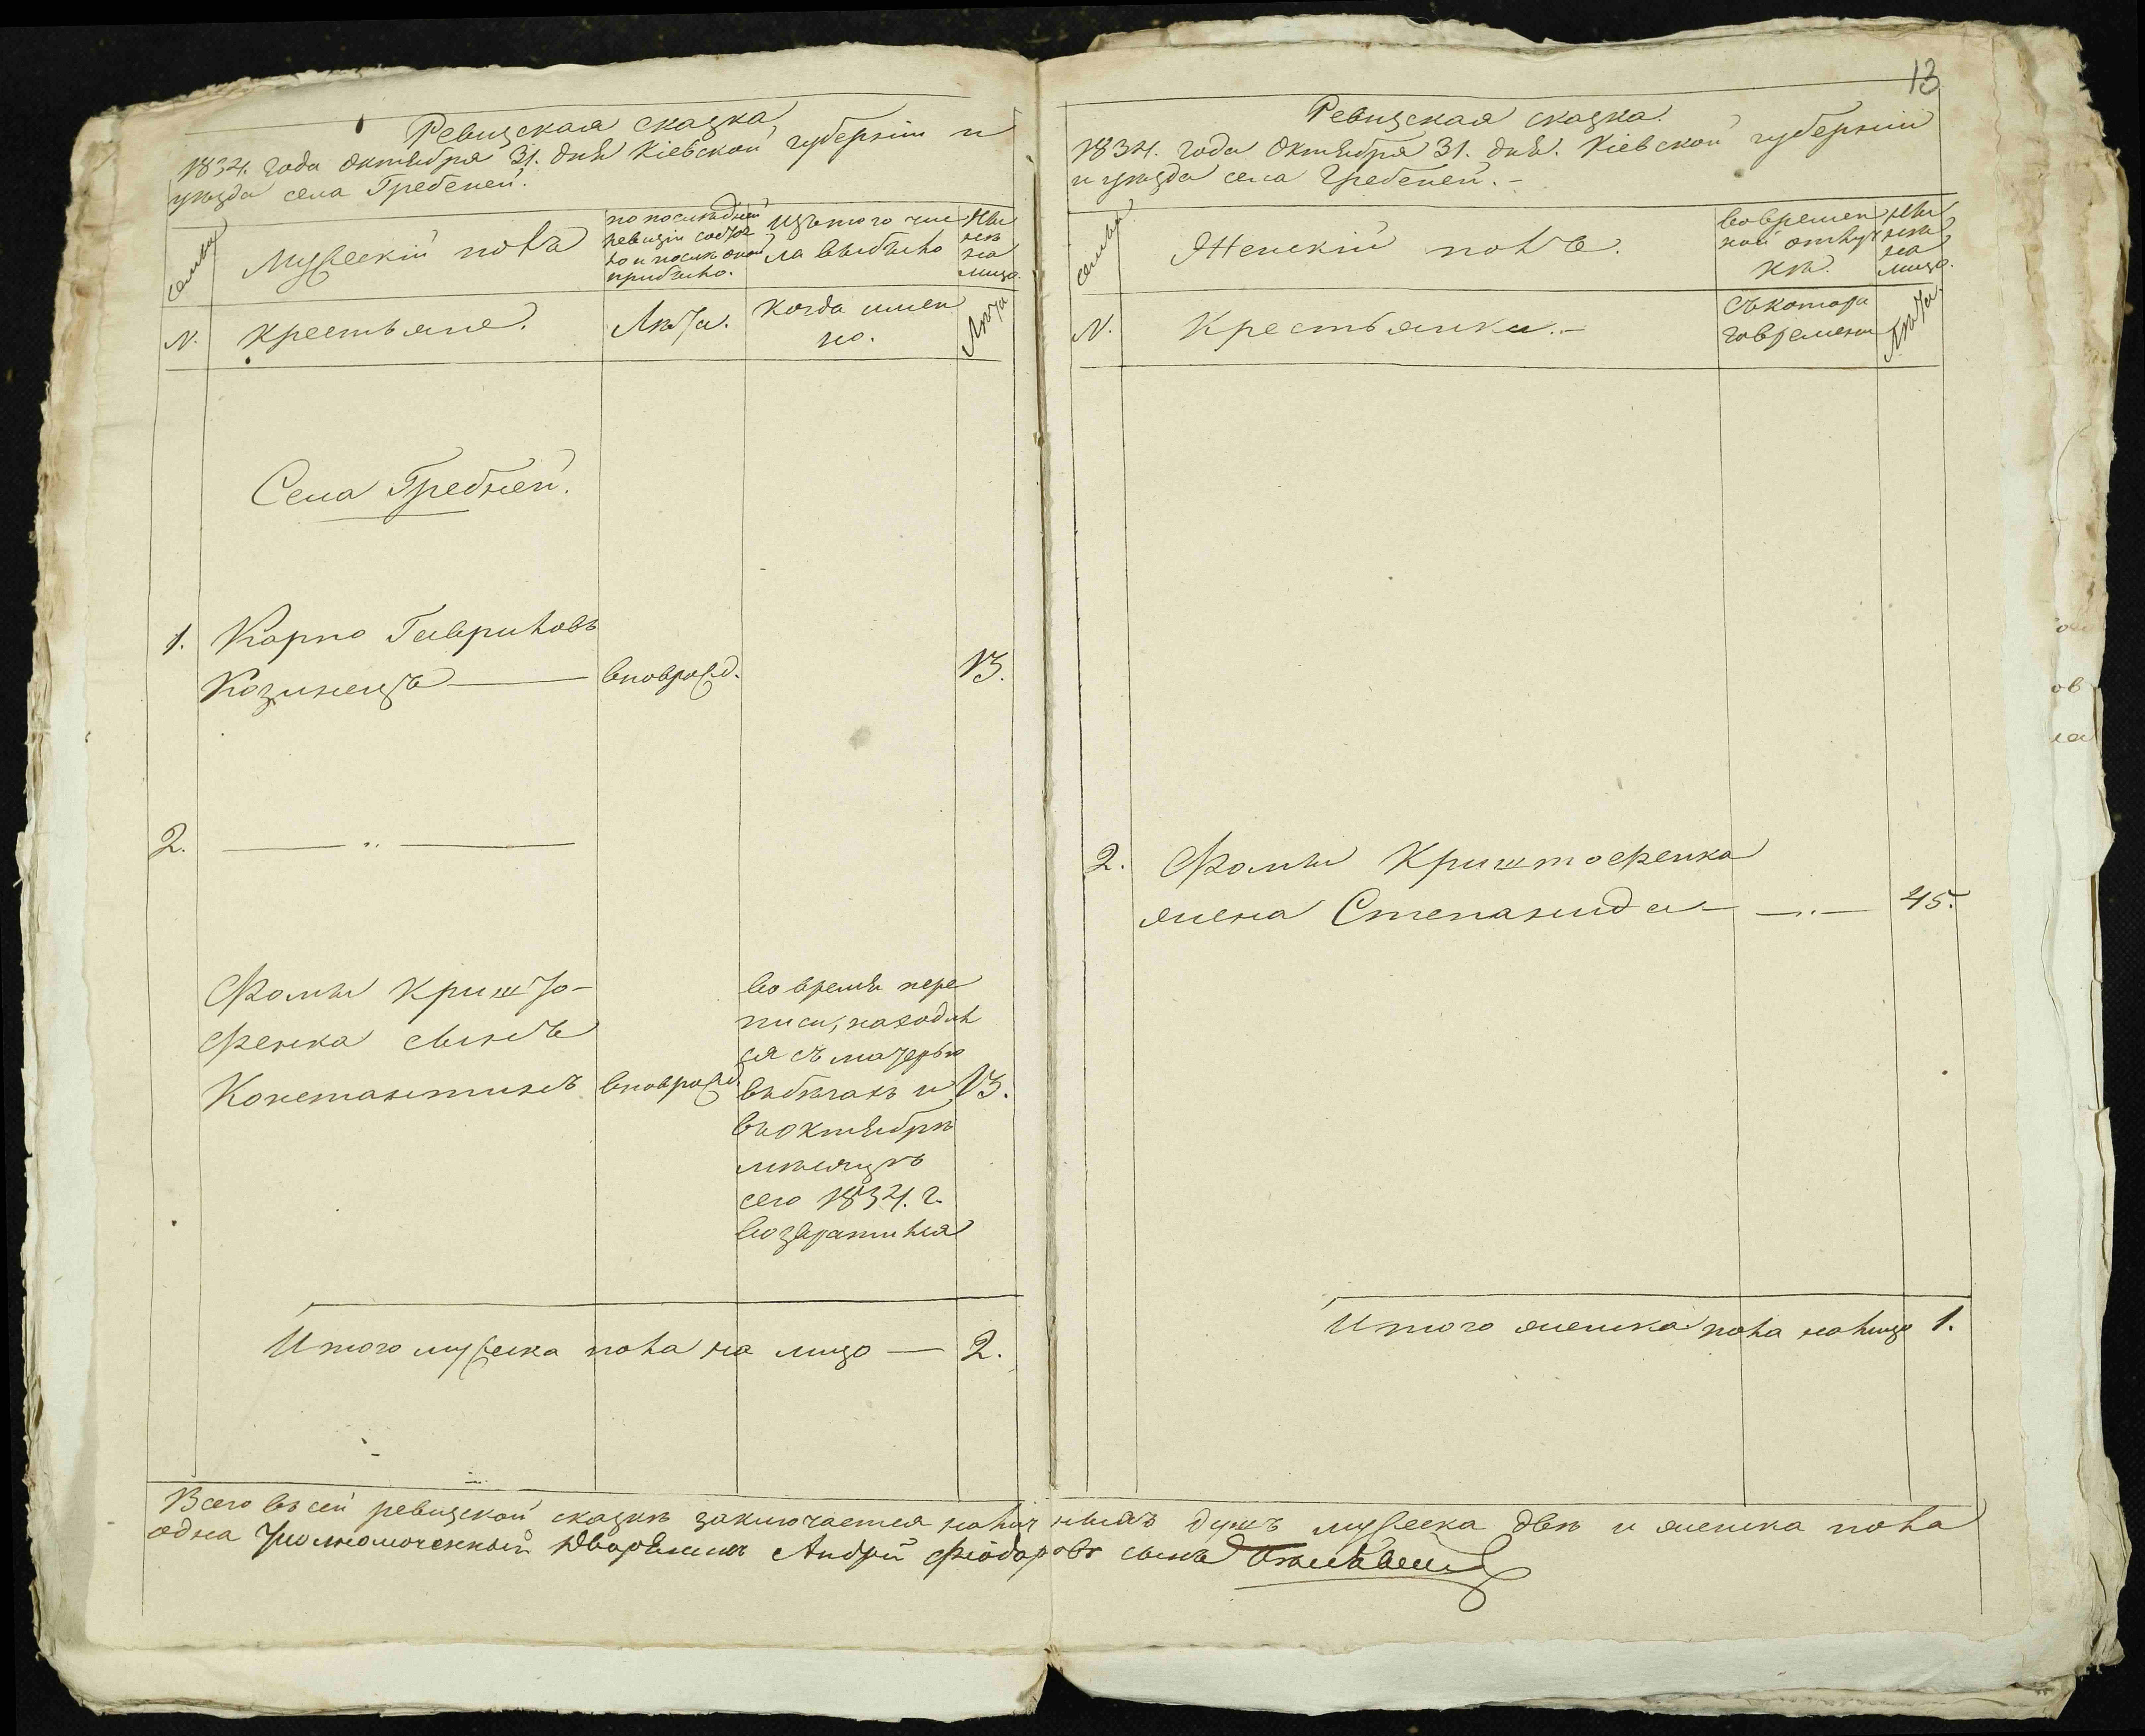 Ревизская сказка
1834. года октября 31. дня Кіевской губерніи и
уезда села Гребеней.
семьи
Мужескій полъ
по последней
ревизіи состоя
ло и после оной
прибыло.
Изъ того чис
ла выбыло
Ны
не
на
лицо.
N.
крестьяне.
Лѣта.
Когда имен
но.
Лѣта
Села Гребней.
1. Карпо Гавриловъ
Козинецъ — вноврожд. 13.
2. — „ —
Фомы Кришто-
фенка сынъ
Константинъ вноврожд. 13.
во время пере
писи, находил
ся съ матерью
въ бегахъ и
въ октябрѣ
мѣсяцѣ
сего 1834. г.
возвратился
Итого мужеска пола на лицо — 2.
13
Ревизская сказка.
1834. года октября 31. дня. Кіевской губерніи
и уѣзда села Гребеней. -
семьи
Женскій полъ.
во времен
ной отлуч
кѣ.
Ны
нѣ
на
лицо.
N.
Крестьянки. -
съ котора
го времени
Лѣта.
2. Фомы Криштофенка
жена Степанида — „ — 45.
Итого женска пола на лицо 1.
Всего въ сей ревизской сказкѣ заключается наличныхъ душъ мужеска двѣ и женска пола
одна Уполномоченный Дворянинъ Андрей Фіодоровъ сынъ